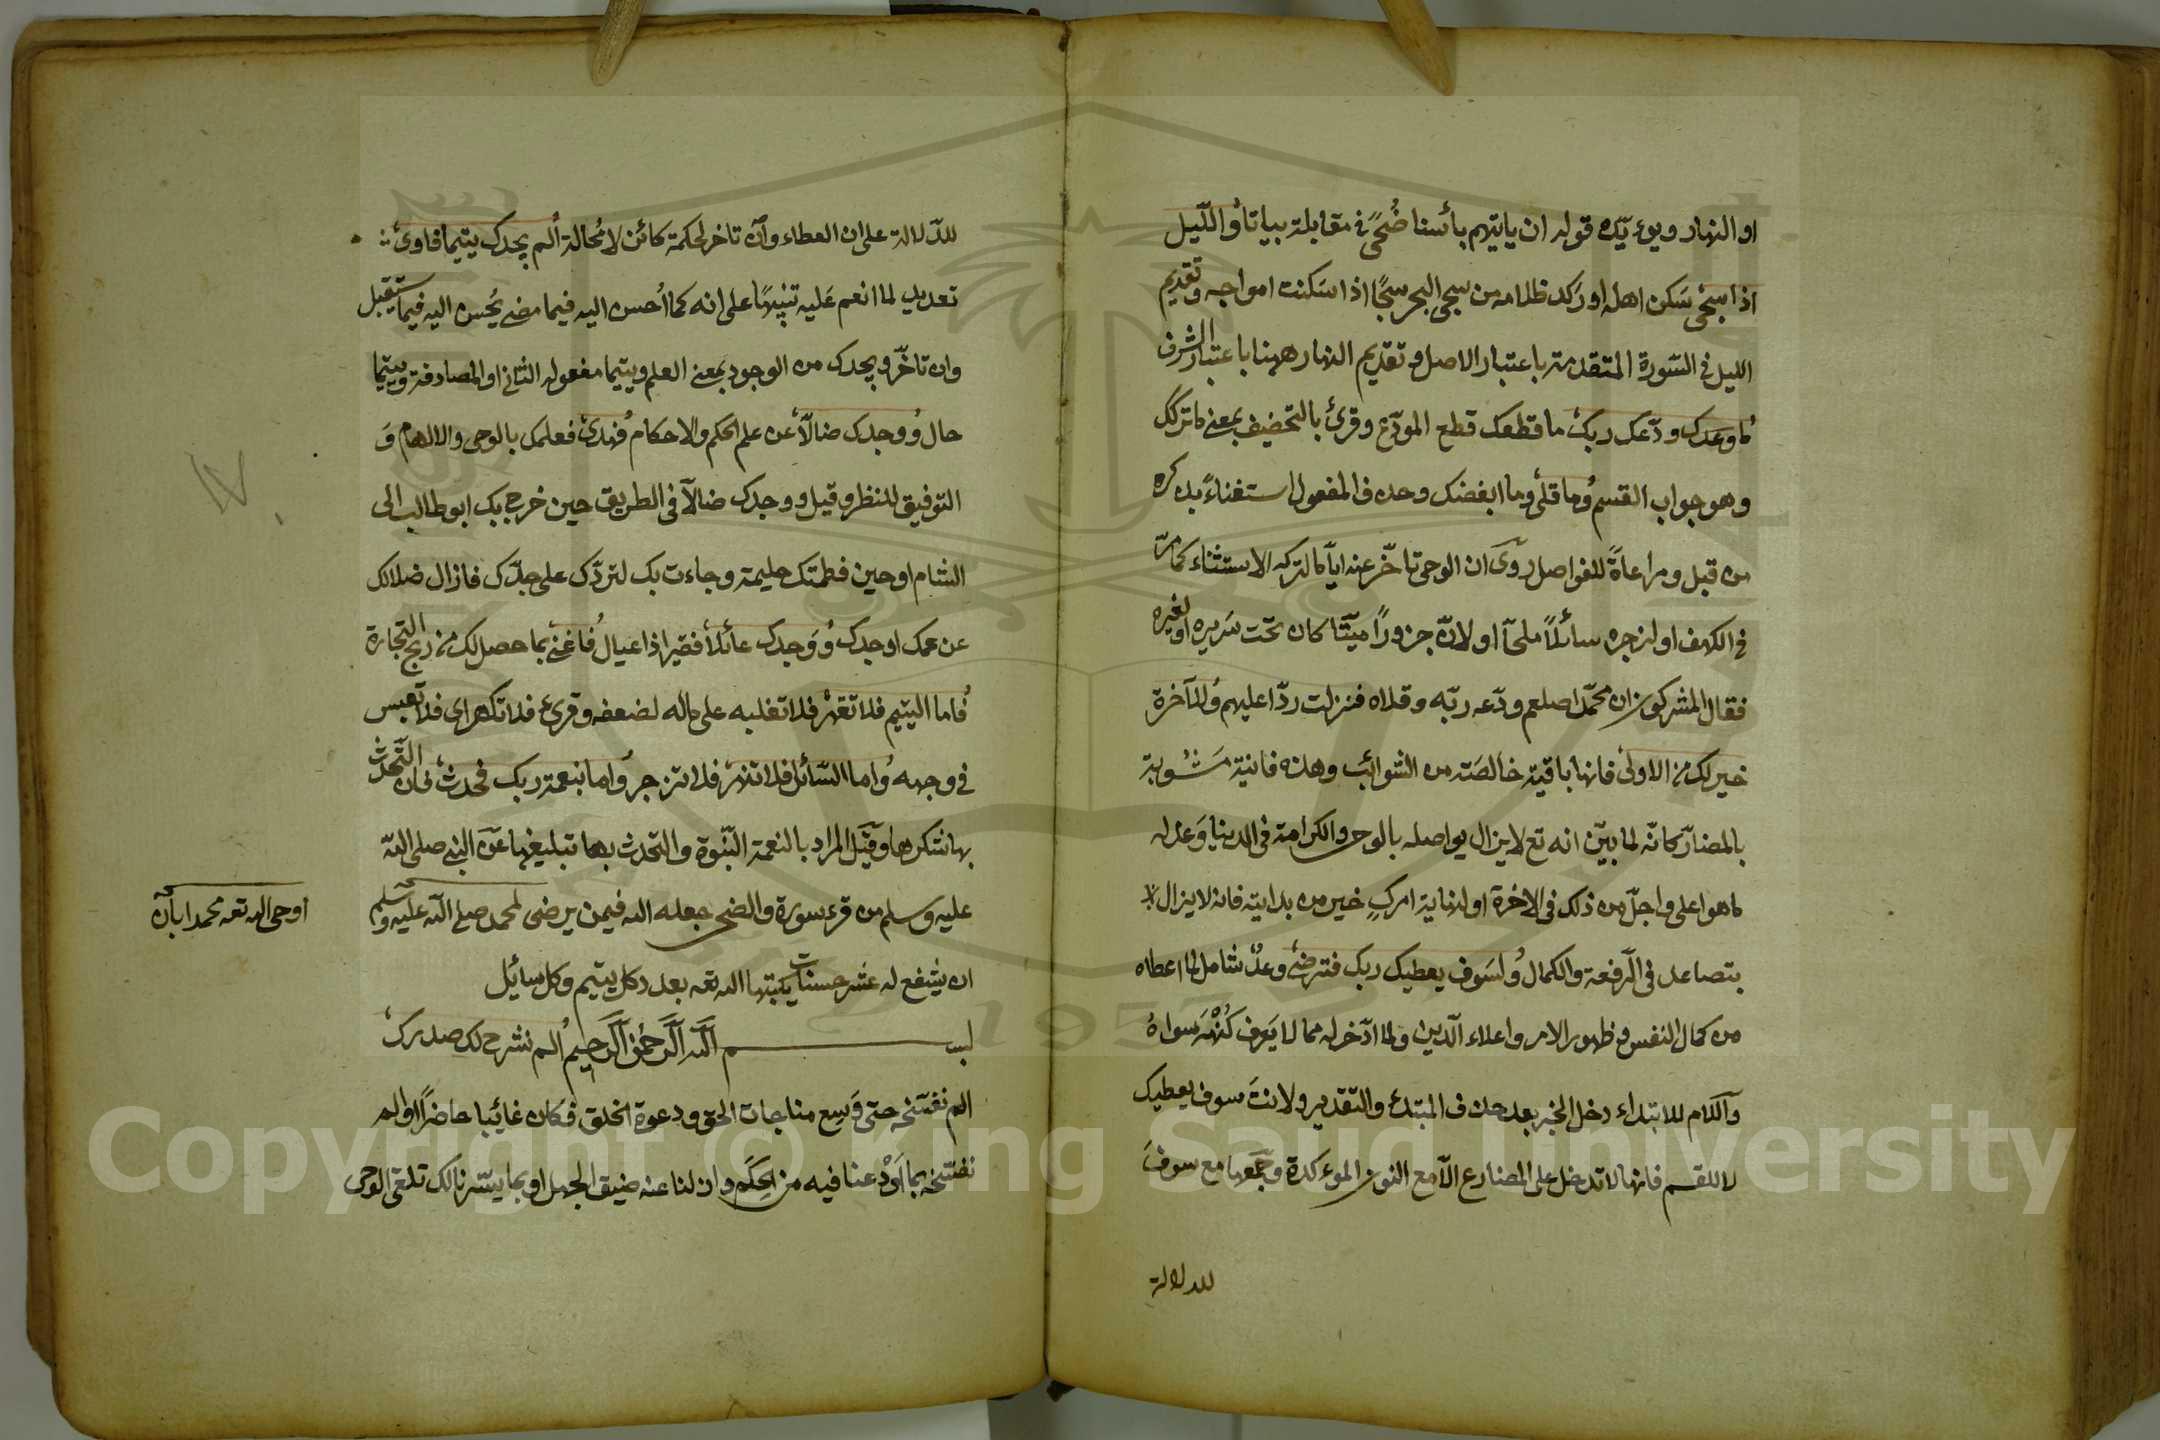 او النهار ويؤيّده قوله ان يأتيهم بأسنا ضُحًى في مقابلة بياتا وُالليل
اذا سجى سَكن اهله او رَكد ظلامه من سجى البحر سجًا اذا سَكنت امواجه وتقديم
الليل في السّورة المتقدمة باعتبار الاصل وتقديم النهار ههنا باعتبار الشرف
مُا ودّعك ربك ما قطعك قطع المودّع وقرئ بالتخفيف بمعنى ما تركك
وهو جواب القسم وُما قلى وما ابغضك وحذف المفعول استغناءً بذكره
من قبل ومراعاةً للفواصل روىَ ان الوحى تاخّر عنه ايّاما لتركه الاستثناء كما مرّ
في الكهف او لزجره سائلاً ملحّا او لانّ جروًا ميّتا كان تحت سَريره او لغيره
فقال المشركون ان محمّدا صلعم ودّعه ربّه وقلاه فنزلت ردّا عليهم وُللآخرة
خير لك من الاولى فانها باقية خالصَة من الشوائب وهذه فانية مَشُوبة
بالمضارّ كانّه لما بيّن انه تع لا يزال يواصله بالوحى والكرامة في الدنيا وَعد له
ما هو اعلى واجلّ من ذلك في الاخرة او لنهاية امركٍ خير من بدايته فانه لا يزال
يتصاعد في الرفعة والكمال وُلسَوف يعطيك ربك فترضى وعدٌ شامل لما اعطاه
من كمال النفس وظهور الامر واعلاء الدين ولما ادّخر له مما لا يَعرف كُنْهَه سواهُ
واللام للابتداء دخل الخبر بعد حذف المبتدئ والتقدير ولانتَ سوف يعطيك
لا للقسم فانها لا تدخل على المضارع الّا مع النون الموءكدة وجَمَعها مع سوفَ
للدلالة
للدّلالة على ان العطاء وآن تاخر لحكمة كائن لا مُحالة اُلم يجدك يتيما فاوى
تعديد لما انعم عَليه تنبيهًا على انه كما اُحسن اليه فيما مضى يُحسن اليه فيما يستقبل
وان تاخّر ويجدك من الوجود بمعنى العلم ويتيما مفعوله الثانى او المصادفة ويتيما
حال وُوجدك ضالاًّ عن علم الحكم والاحكام فُهدى فعلمك بالوحى والالهام وَ
التوفيق للنظر وقيل ووجدك ضالاّ في الطريق حين خرج بك ابوطالب الى
الشام او حين فطمتك حليمة وجاءت بك لتردّك على جدّك فازال ضلالك
عن عمك او جدك وُوَجدك عائلاً فقيرا ذا عيال فُاغنى بما حصل لك من ربح التجارة
فُاما اليتيم فلا تقهر فلا تغلبه على ماله لضعفه وقرئ فلا تكهر اى فلا تعبس
في وجهه وُاما السّائل فلا تنهر فلا تزجر وُاما بنعمة ربك فحدث فان التحدّث
بها شكرها وقيل المراد بالنعمة النّبوة والتحدث بها تبليغها عن النبى صلى الله
عليه وسلم من قرء سورة والضحى جعله الله فيمن يرضى لمحمد صلى الله عليه وسلم
ان يشفع له عشر حسنات يكتبها الله تعه بعدد كل يتيم وكل سائل
بسم اللَّه الرَّحمٰن الرَّحيم اُلم نشرح لك صدرك
الم نفسحه حتى وَسِع مناجات الحق ودعوة الخلق فكان غائبا حاضراً او الم
نفسحه بما اَوْدعنا فيه من الحِكَم وازلنا عنه ضيق الجهل او بما يسّرنا لك تلقى الوحى
اوحى الله تعه محمدا بأن